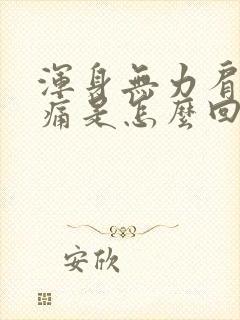 渾身無力肩
痛是怎麼回
安欣